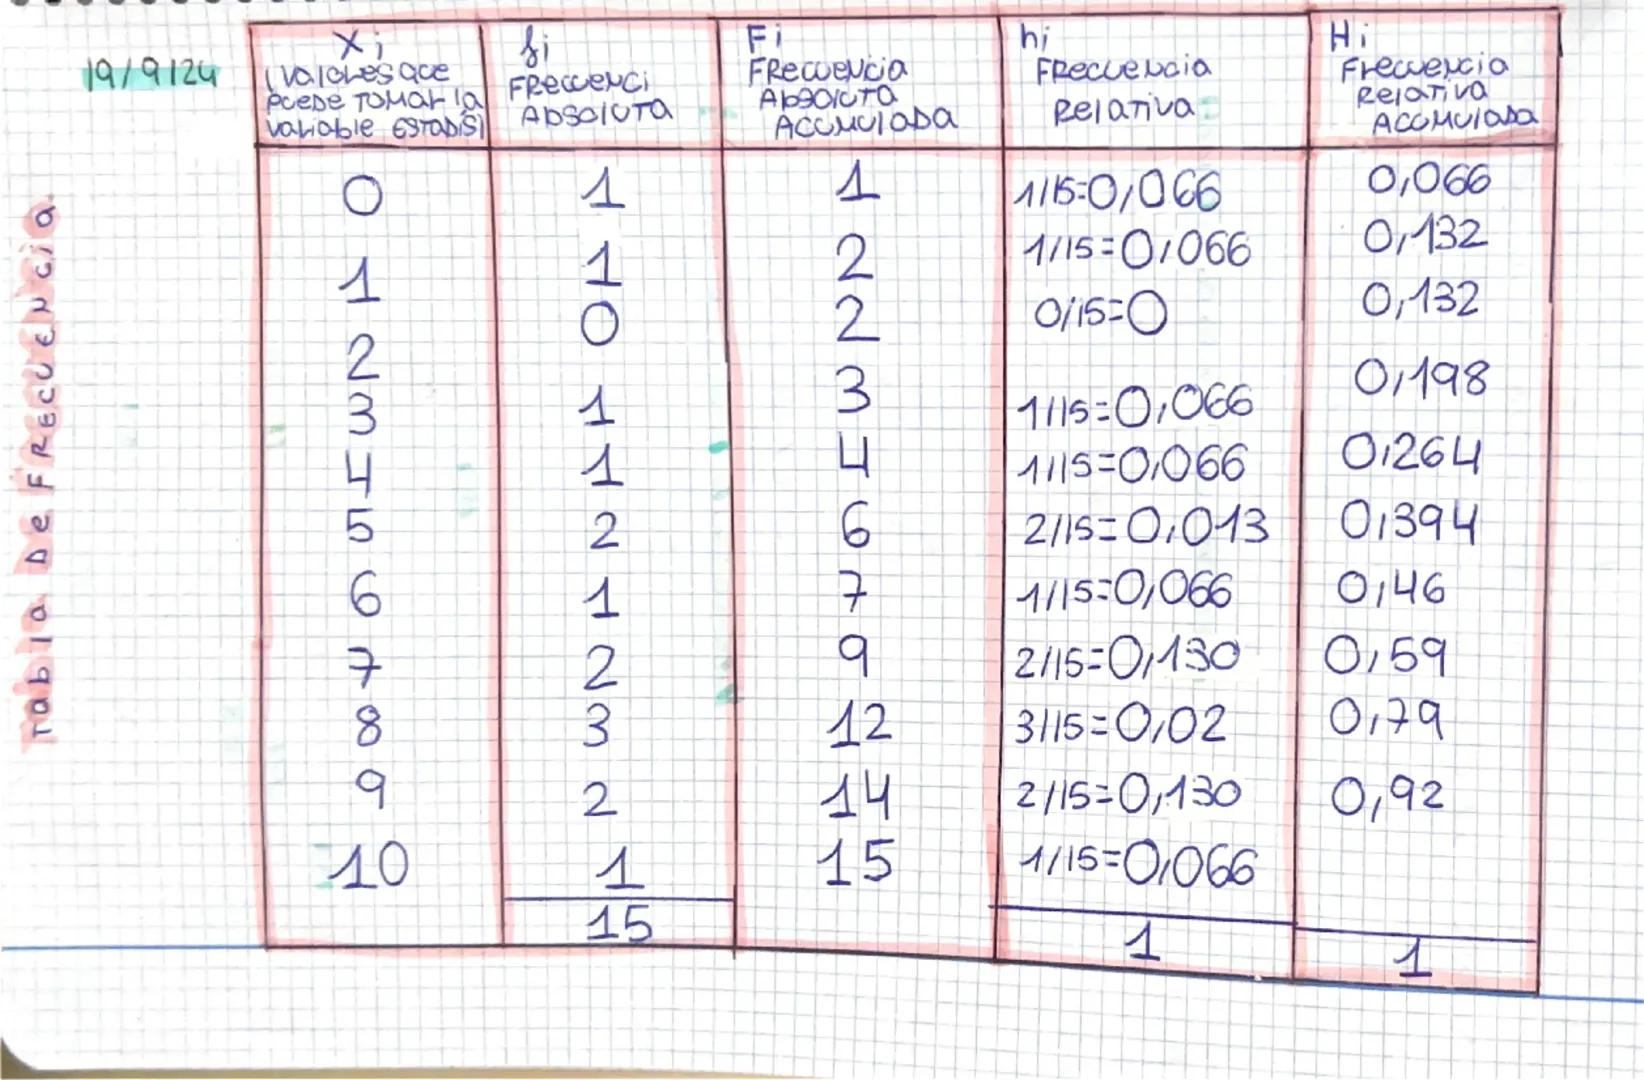 19/9/24
Tabla De Frecuencia
Xi | fi | Fi | hi | Hi
(Valores que puede Tomar la variable estadis) | Frecuenci Absoluta | Frecuencia Absoluta Acumulada | Frecuencia Relativa | Frecuencia Relativa Acumulada
0 | 1 | 1 | 1/15=0,066 | 0,066
1 | 1 | 2 | 1/15=0,066 | 0,132
2 | 0 | 2 | 0/15=0 | 0,132
3 | 1 | 3 | 1/15=0,066 | 0,198
4 | 1 | 4 | 1/15=0,066 | 0,264
5 | 2 | 6 | 2/15=0,013 | 0,394
6 | 1 | 7 | 1/15=0,066 | 0,46
7 | 2 | 9 | 2/15=0,130 | 0,59
8 | 3 | 12 | 3/15=0,02 | 0,79
9 | 2 | 14 | 2/15=0,130 | 0,92
10 | 1 | 15 | 1/15=0,066
15 | 1 | 1